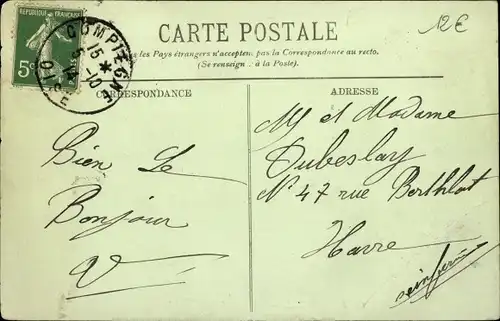 CARTE POSTALE
12€
REPUBLIQUE FRANÇAISE
5c
COMPIEGNE
15 *
5 - 10
OISE
les Pays étrangers n'acceptent pas la Correspondance au recto.
(Se renseigner à la Poste).
CORRESPONDANCE
Bien Le
Bonjour
V
ADRESSE
M et Madame
Dubeslay
N° 47 rue Berthlot
Havre